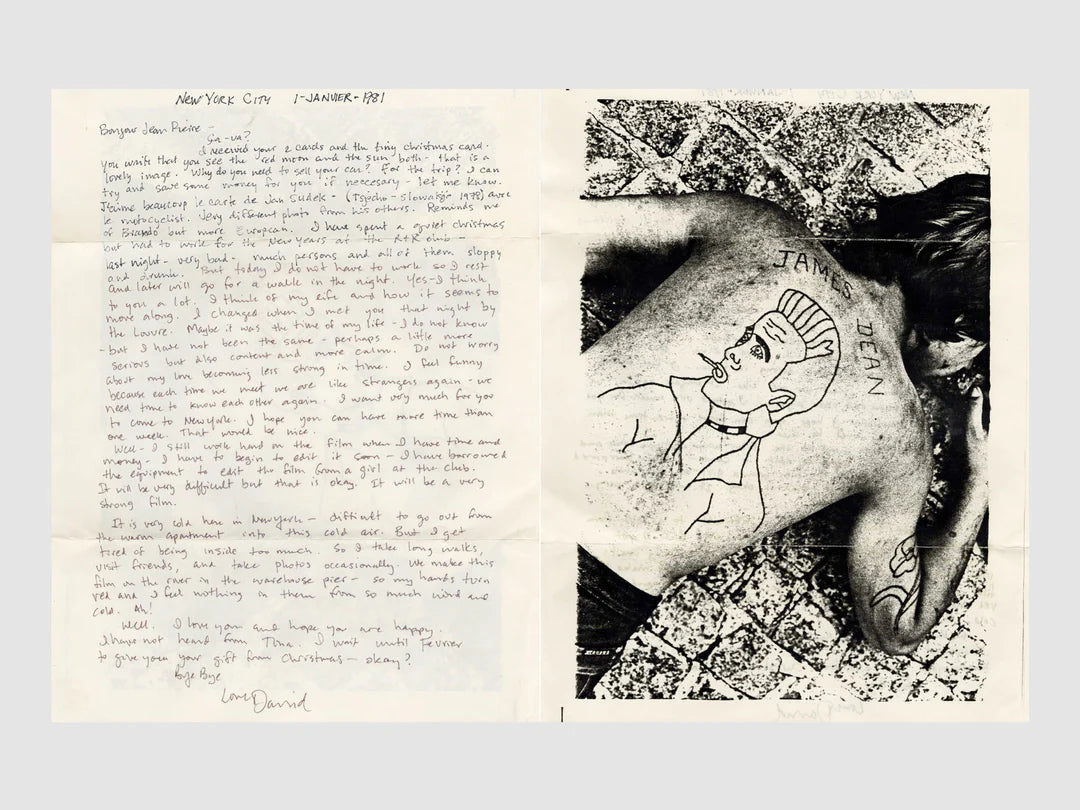 NEW YORK CITY 1-JANVIER-1981
Bonjour Jean Pierre –
Ça-va?
I received your 2 cards and the tiny christmas card.
you write that you see the red moon and the sun both – that is a
lovely image. Why do you need to sell your car? For the trip? I can
try and save some money for you if neccesary – let me know.
J'aime beaucoup le carte de Jan Sudek – 1978) avec
le motocyclist. Very different photo from his others. Reminds me
of Brando but more European. I have spent a quiet christmas
but had to work for the New Years at the club –
last night – very bad. much persons and all of them sloppy
and drunk. But today I do not have to work so I rest
and later will go for a walk in the night. Yes – I think
to you a lot. I think of my life and how it seems to
move along. I changed when I met you that night by
the Louvre. Maybe it was the time of my life – I do not know
– but I have not been the same – perhaps a little more
serious but also content and more calm. Do not worry
about my love becoming less strong in time. I feel funny
because each time we meet we are like strangers again – we
need time to know each other again. I want very much for you
to come to New York. I hope you can have more time than
one week. That would be nice.
Well – I still work hard on the film when I have time and
money – I have to begin to edit it soon – I have borrowed
the equipment to edit the film from a girl at the club.
It will be very difficult but that is okay. It will be a very
strong film.
It is very cold here in New York – difficult to go out from
the warm apartment into this cold air. But I get
tired of being inside too much. So I take long walks,
visit friends, and take photos occasionally. We make this
film on the river in the warehouse pier – so my hands turn
red and I feel nothing in them from so much wind and
cold. Ah!
Well. I love you and hope you are happy.
I have not heard from Tina. I wait until Fevrier
to give you your gift from Christmas – okay?
Bye Bye
Love David
JAMES
DEAN